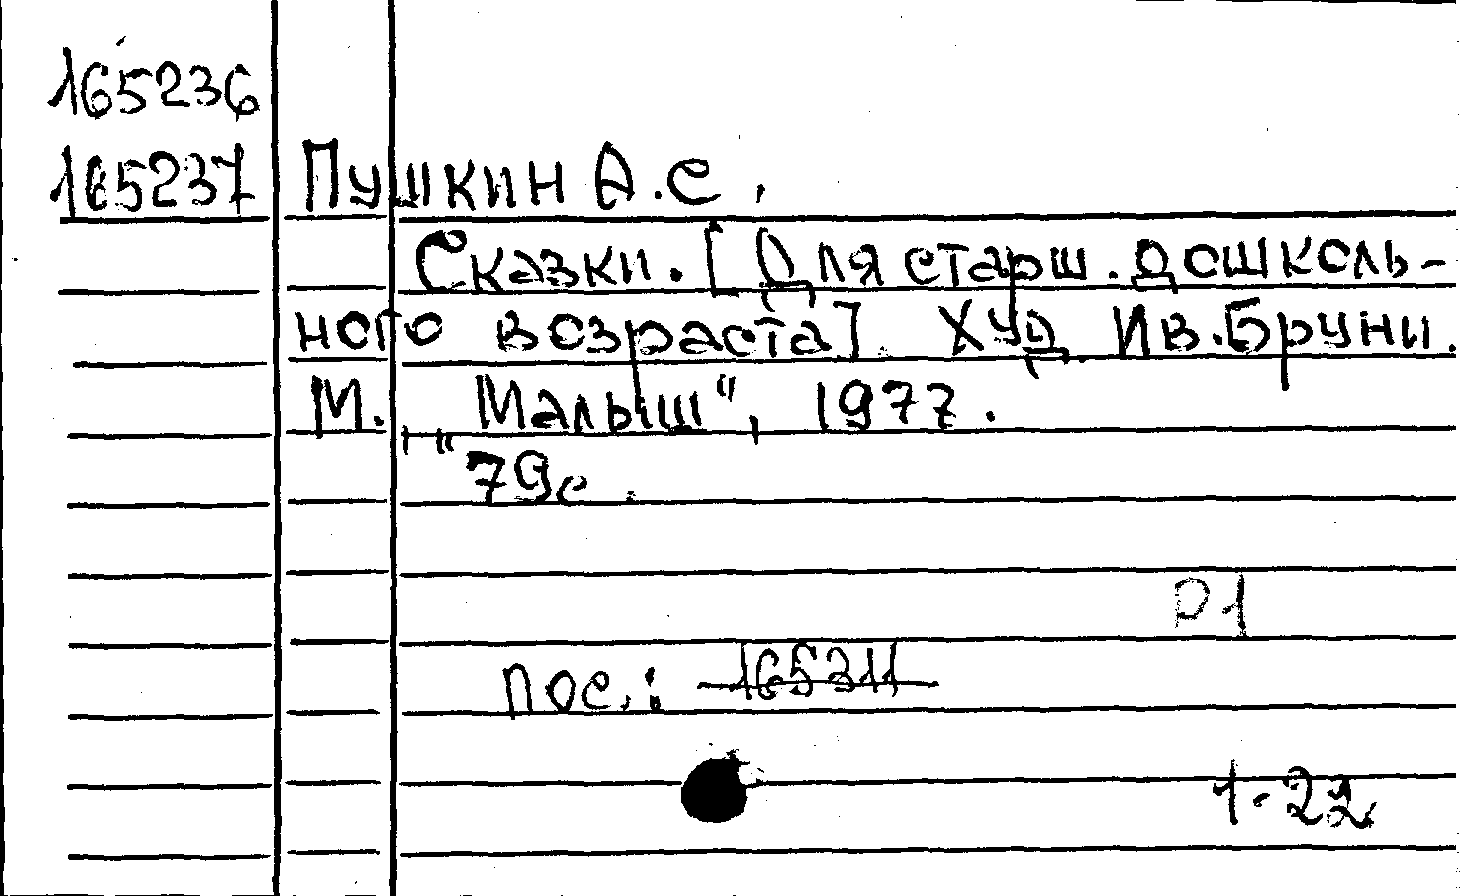 165236
165237 Пушкин А.С.
Сказки. [Для старш. дошколь-
ного возраста]. Худ. Ив. Бруни.
М., „Малыш", 1977.
79с.
Р1
пос.: 165311
1-22